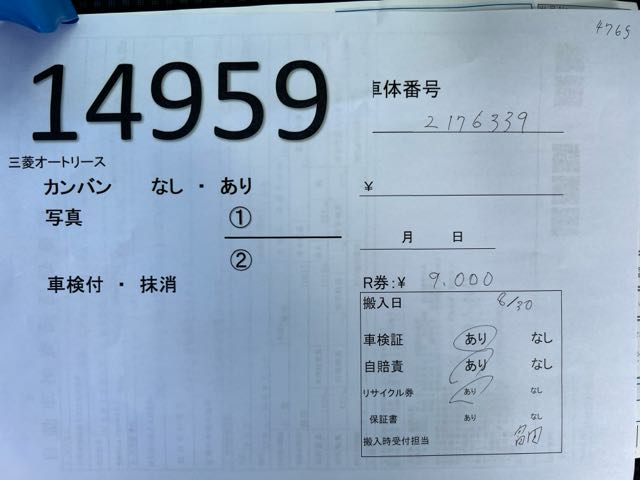 4765
14959
三菱オートリース
カンバン なし ・ あり
写真 ①
②
車検付 ・ 抹消
車体番号
2176339
¥
月 日
R券:¥ 9,000
搬入日 8/30
車検証 あり なし
自賠責 あり なし
リサイクル券 あり なし
保証書 あり なし
搬入時受付担当